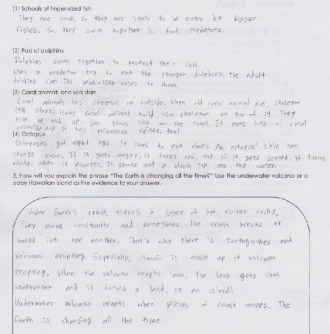 (1) Schools of finger-sized fish
They are small, so they are likely to be eaten by bigger
fishes. So, they swim together to fool predators.
(2) Pod of dolphins
Dolphins swim together to protect their calf.
When a predator try to eat the younger dolphins, the adult
dolphins can use to them.
(3) Coral animals and sea stars
Coral animals has skeleton on outside. When old coral animal die, skeleton
stay. Baby coral animal build new skeleton on top of it. They
pile up and up. Sea stars like on the coral. It eats lots of coral
animals and it has poisonous spines, too!
(4) Octopus
Octopuses got eight legs. It likes to eat clams. An octopus' skin can
change color. If it gets angry, it turns red, but if it gets scared, it turns
white. When it escapes, it shoots out a black ink into the water.
3. How will you explain the phrase "The Earth is changing all the time?" Use the underwater volcano or a
baby Hawaiian island as the evidence to your answer.
Under Earth's crust, there's a layer of hot, molten rocks,
They move constantly and sometimes the crust breaks or
bumps into one another. That's why there is earthquakes and
volcanos erupting. Especially, Hawaii is made up of volcano
erupting. When the volcano erupts lava, the lava gets cool
underwater and it forms a land, or an island!
Underwater volcano erupts when pieces of crust moves. The
Earth is changing all the time.